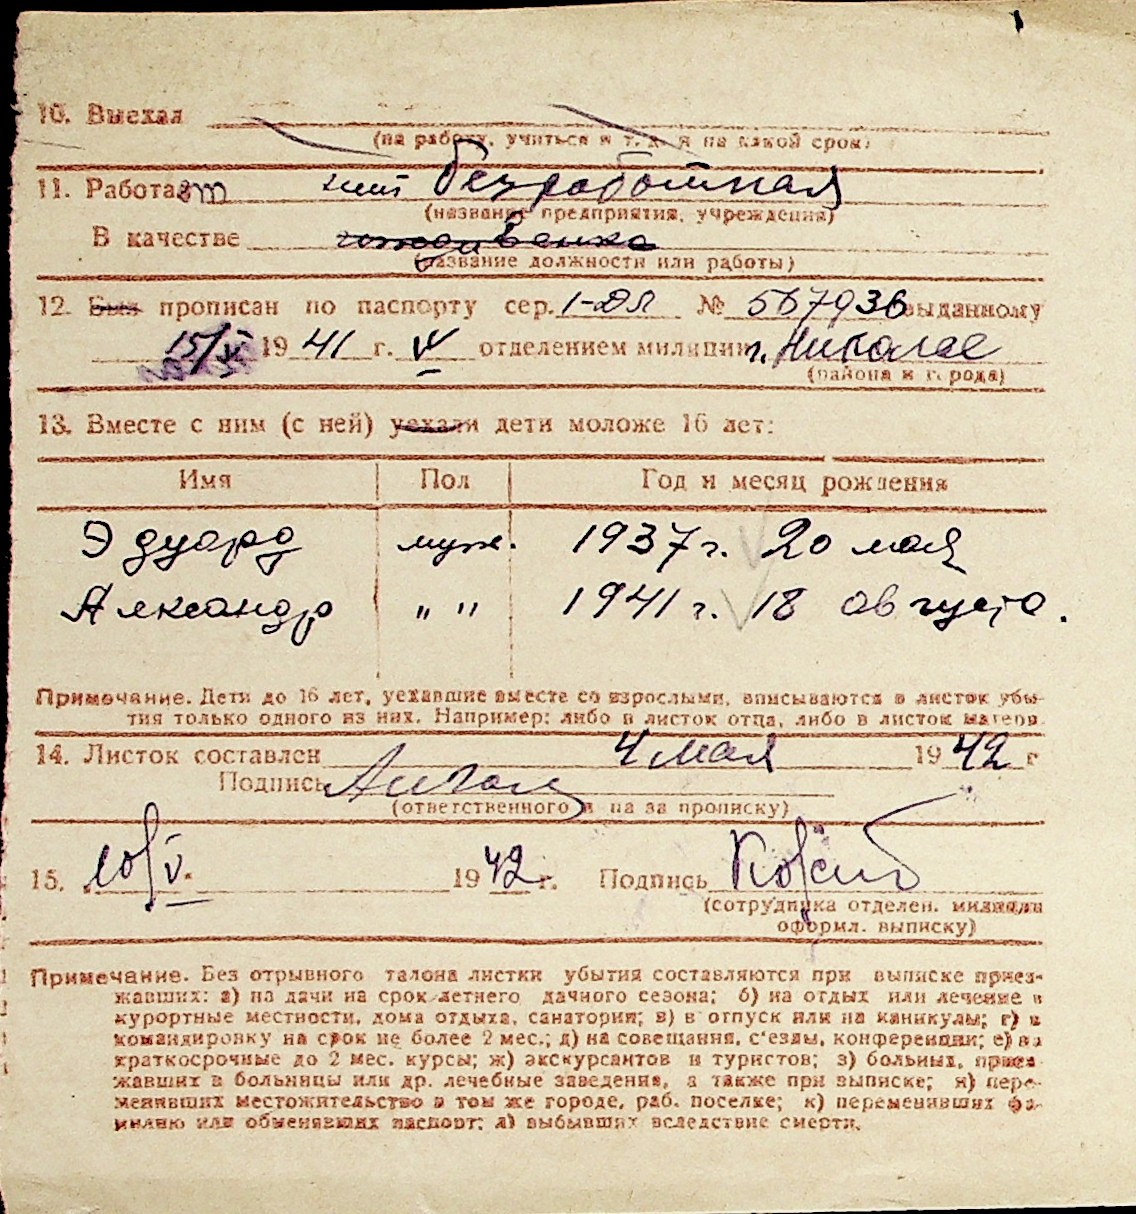 10. Выехал
(на работу, учиться и т. д. и на какой срок)
11. Работает безработная
(название предприятия, учреждения)
В качестве иждивенка
(название должности или работы)
12. Был прописан по паспорту сер. 1-ДЯ № 567936 выданному
15/V 1941 г. V отделением милиции г. Николаев
(района и города)
13. Вместе с ним (с ней) уехали дети моложе 16 лет:
Имя Пол Год и месяц рождения
Эдуард муж. 1937 г. 20 мая
Александр „ " 1941 г. 18 августа.
Примечание. Дети до 16 лет, уехавшие вместе со взрослыми, вписываются в листок убы-
тия только одного из них. Например: либо в листок отца, либо в листок матери.
14. Листок составлен 4 мая 1942 г
Подпись
(ответственного л-ца за прописку)
15. 10/V. 1942 г. Подпись
(сотрудника отделен. милиции
оформл. выписку)
Примечание. Без отрывного талона листки убытия составляются при выписке приез-
жавших: а) на дачи на срок летнего дачного сезона; б) на отдых или лечение в
курортные местности, дома отдыха, санатории; в) в отпуск или на каникулы; г) в
командировку на срок не более 2 мес.; д) на совещания, с'езды, конференции; е) на
краткосрочные до 2 мес. курсы; ж) экскурсантов и туристов; з) больных, приез-
жавших в больницы или др. лечебные заведения, а также при выписке; и) пере-
менивших местожительство в том же городе, раб. поселке; к) переменивших фа-
милию или обменявших паспорт; л) выбывших вследствие смерти.